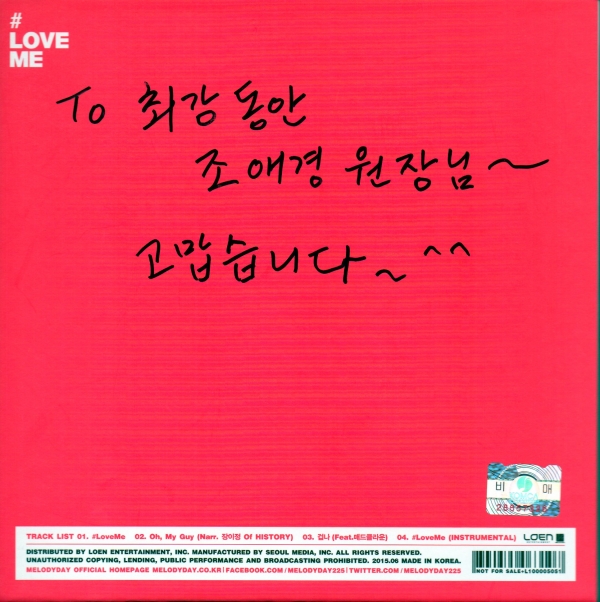 #
LOVE
ME
To 최강 동안
조애경 원장님~
고맙습니다~ ^^
비 매
TRACK LIST 01. #LoveMe 02. Oh, My Guy (Narr. 장이정 Of HISTORY) 03. 겁나 (Feat.매드클라운) 04. #LoveMe (INSTRUMENTAL) LOEN
DISTRIBUTED BY LOEN ENTERTAINMENT, INC. MANUFACTURED BY SEOUL MEDIA, INC. ALL RIGHTS RESERVED.
UNAUTHORIZED COPYING, LENDING, PUBLIC PERFORMANCE AND BROADCASTING PROHIBITED. 2015.06 MADE IN KOREA.
MELODYDAY OFFICIAL HOMEPAGE MELODYDAY.CO.KR | FACEBOOK.COM/MELODYDAY225 | TWITTER.COM/MELODYDAY225
NOT FOR SALE-L100005081